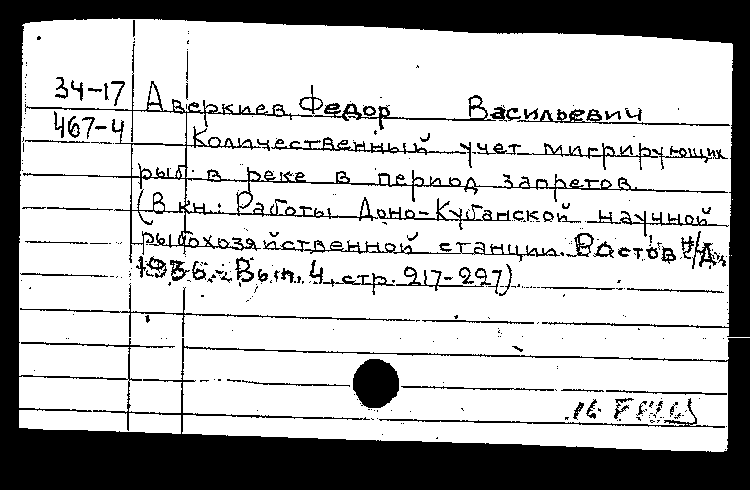 34-17 Аверкиев, Федор Васильевич
467-4 Количественный учет мигрирующих
рыб в реке в период запретов.
(В кн.: Работы Доно-Кубанской научной
рыбохозяйственной станции. Ростов н/Д.,
1936. Вып. 4, стр. 217-227).